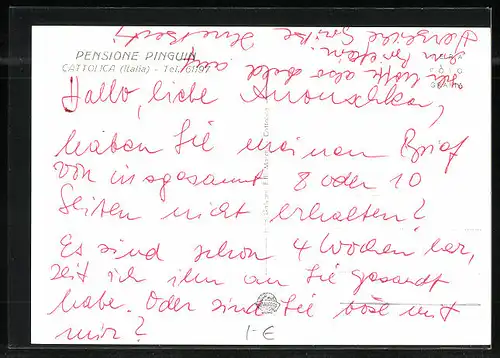 PENSIONE PINGUIN
CATTOLICA (Italia) - Tel. 61197
Hallo, liebe Anouschka,
haben Sie meinen Brief
von insgesamt 8 oder 10
Seiten nicht erhalten?
Es sind schon 4 Wochen her,
seit ich ihn an Sie gesandt
habe. Oder sind Sie böse mit
mir?
Ich hoffe also bald auf
Ihr Brieflein.
Herzliche Grüße
1-€